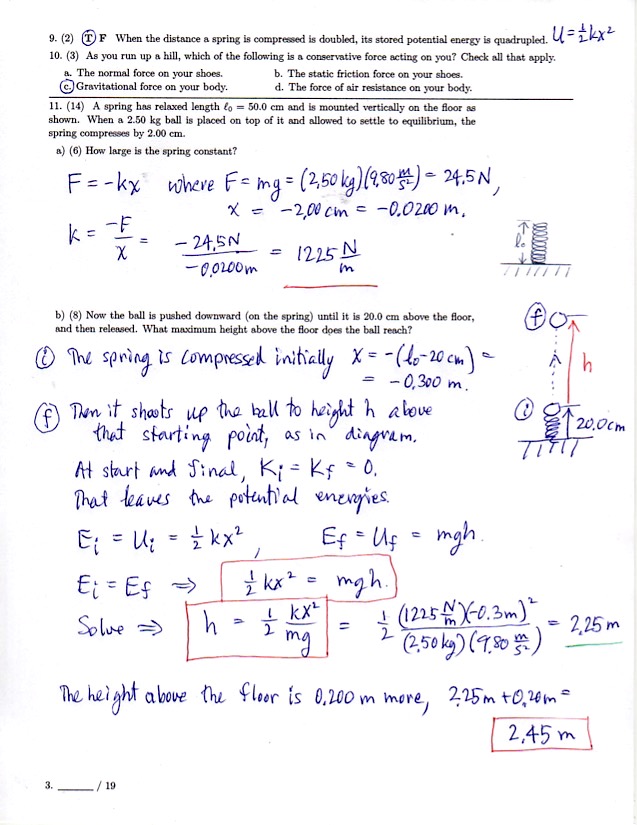 9. (2) T F When the distance a spring is compressed is doubled, its stored potential energy is quadrupled. U = ½kx²
10. (3) As you run up a hill, which of the following is a conservative force acting on you? Check all that apply.
a. The normal force on your shoes. b. The static friction force on your shoes.
c. Gravitational force on your body. d. The force of air resistance on your body.
11. (14) A spring has relaxed length ℓ₀ = 50.0 cm and is mounted vertically on the floor as
shown. When a 2.50 kg ball is placed on top of it and allowed to settle to equilibrium, the
spring compresses by 2.00 cm.
a) (6) How large is the spring constant?
F = -kx where F = mg = (2.50 kg)(9.80 m/s²) = 24.5 N,
x = -2.00 cm = -0.0200 m.
k = -F/x = -24.5N/-0.0200m = 1225 N/m
ℓ₀
b) (8) Now the ball is pushed downward (on the spring) until it is 20.0 cm above the floor,
and then released. What maximum height above the floor does the ball reach?
f
h
i
20.0cm
i The spring is compressed initially x = -(ℓ₀-20cm) =
= -0.300 m.
f Then it shoots up the ball to height h above
that starting point, as in diagram.
At start and final, Ki = Kf = 0.
That leaves the potential energies.
Ei = Ui = ½ kx², Ef = Uf = mgh.
Ei = Ef ⇒ ½ kx² = mgh.
Solve ⇒ h = ½ kx²/mg = ½ (1225 N/m)(-0.3m)²/(2.50kg)(9.80 m/s²) = 2.25 m
The height above the floor is 0.200 m more, 2.25m + 0.20m =
2.45 m
3. ____ / 19